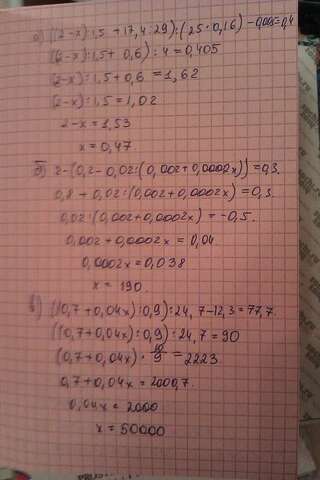 а) ((2-x):1,5 + 17,4:29):(25·0,16) - 0,005=0,4
((2-x):1,5+ 0,6):4 = 0,405
(2-x):1,5+0,6 = 1,62
(2-x):1,5 = 1,02
2-x = 1,53
x = 0,47
б) 2-(0,2- 0,02:(0,002+0,0002x)) = 0,3.
0,8 + 0,02:(0,002+0,0002x) = 0,3.
0,02:(0,002+0,0002x) = -0,5.
0,002+0,0002x = 0,04
0,0002x = 0,038
x = 190.
в) ((0,7+0,04x):0,9):24,7-12,3=77,7.
((0,7+0,04x):0,9):24,7 = 90
(0,7+0,04x)·10/9 = 2223
0,7+0,04x = 2000,7.
0,04x = 2000
x = 50000